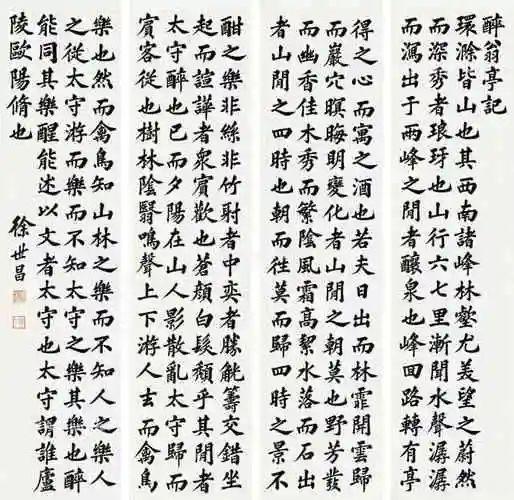 醉翁亭記
環滁皆山也其西南諸峰林壑尤美望之蔚然
而深秀者琅玡也山行六七里漸聞水聲潺潺
而瀉出于兩峰之閒者釀泉也峰回路轉有亭
得之心而寓之酒也若夫日出而林霏開雲歸
而巖穴暝晦明變化者山閒之朝莫也野芳發
而幽香佳木秀而繁陰風霜高絜水落而石出
者山閒之四時也朝而往莫而歸四時之景不
酣之樂非絲非竹射者中奕者勝觥籌交錯坐
起而諠譁者衆賓歡也蒼顏白髮頹乎其閒者
太守醉也已而夕陽在山人影散亂太守歸而
賓客從也樹林陰翳鳴聲上下游人去而禽鳥
樂也然而禽鳥知山林之樂而不知人之樂人
之從太守游而樂而不知太守之樂其樂也醉
能同其樂醒能述以文者太守也太守謂誰廬
陵歐陽脩也
徐世昌